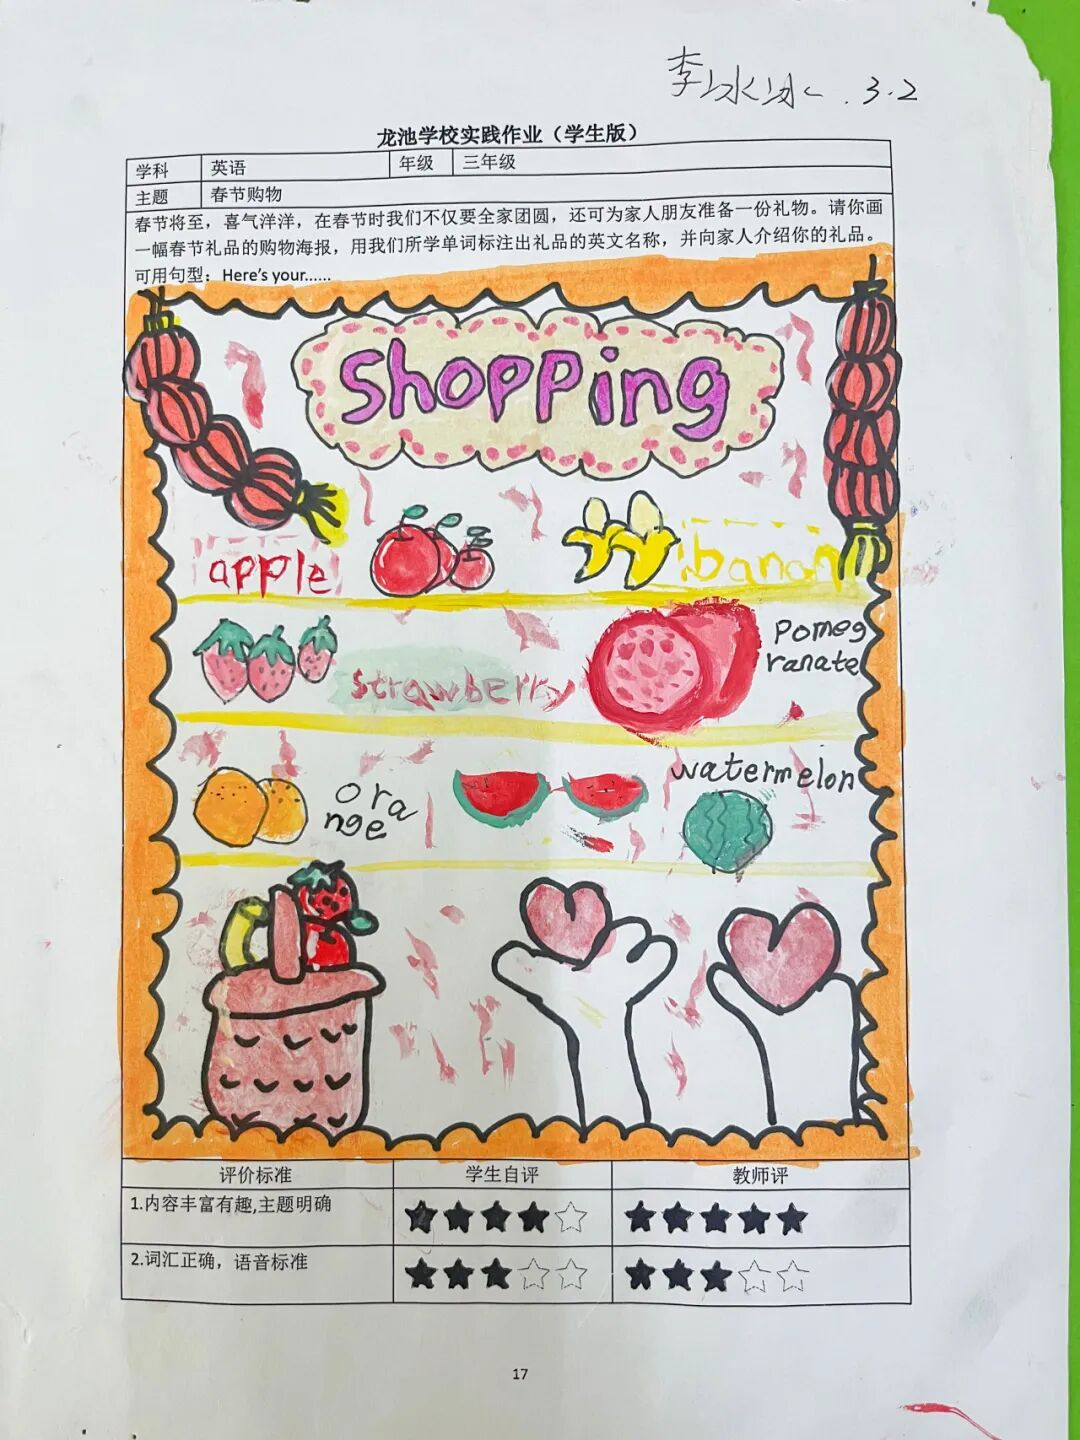 李冰冰.3.2
龙池学校实践作业（学生版）
学科 英语 年级 三年级
主题 春节购物
春节将至，喜气洋洋，在春节时我们不仅要全家团圆，还可为家人朋友准备一份礼物。请你画
一幅春节礼品的购物海报，用我们所学单词标注出礼品的英文名称，并向家人介绍你的礼品。
可用句型：Here's your......
Shopping
apple
banan
strawberry
Pomeg
ranate
ora
nge
watermelon
评价标准 学生自评 教师评
1.内容丰富有趣,主题明确
2.词汇正确，语音标准
17